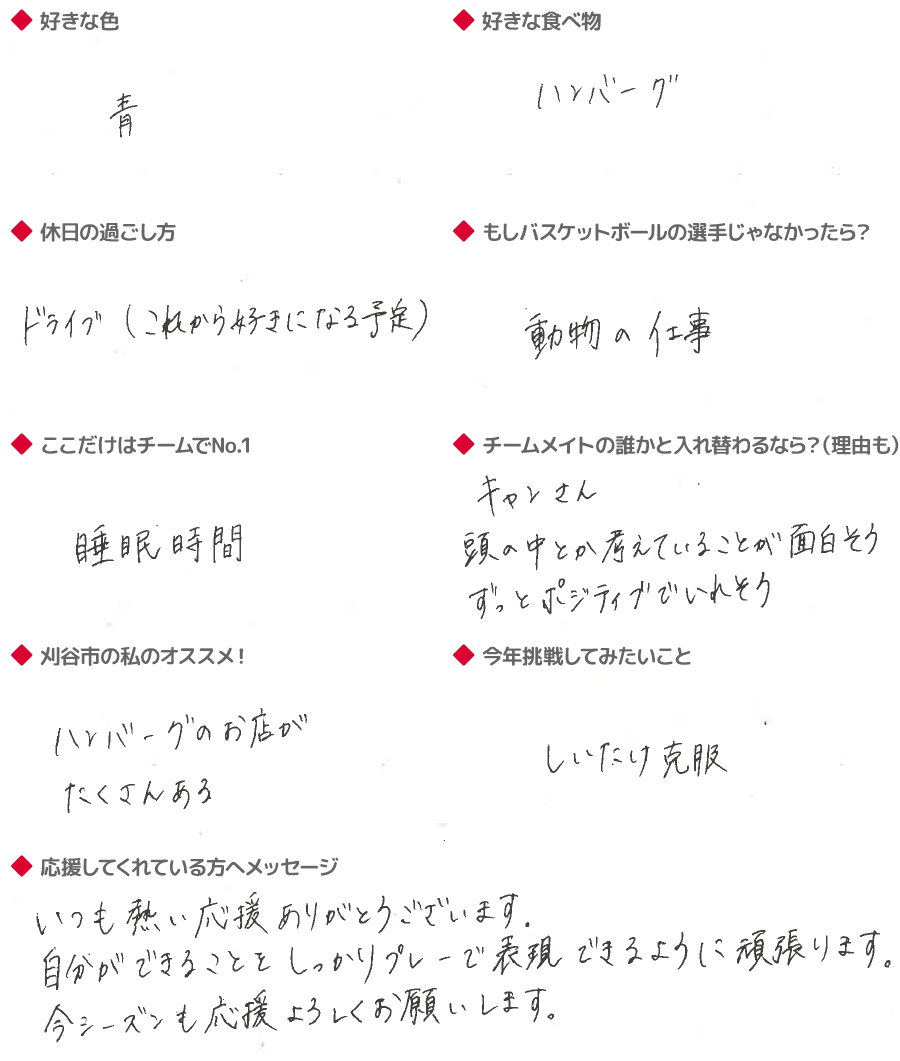 ◆ 好きな色
青
◆ 好きな食べ物
ハンバーグ
◆ 休日の過ごし方
ドライブ(これから好きになる予定)
◆ もしバスケットボールの選手じゃなかったら?
動物の仕事
◆ ここだけはチームでNo.1
睡眠時間
◆ チームメイトの誰かと入れ替わるなら?(理由も)
キャンさん
頭の中とか考えていることが面白そう
ずっとポジティブでいれそう
◆ 刈谷市の私のオススメ!
ハンバーグのお店が
たくさんある
◆ 今年挑戦してみたいこと
しいたけ克服
◆ 応援してくれている方へメッセージ
いつも熱い応援ありがとうございます.
自分ができることをしっかりプレーで表現できるように頑張ります。
今シーズンも応援よろしくお願いします。